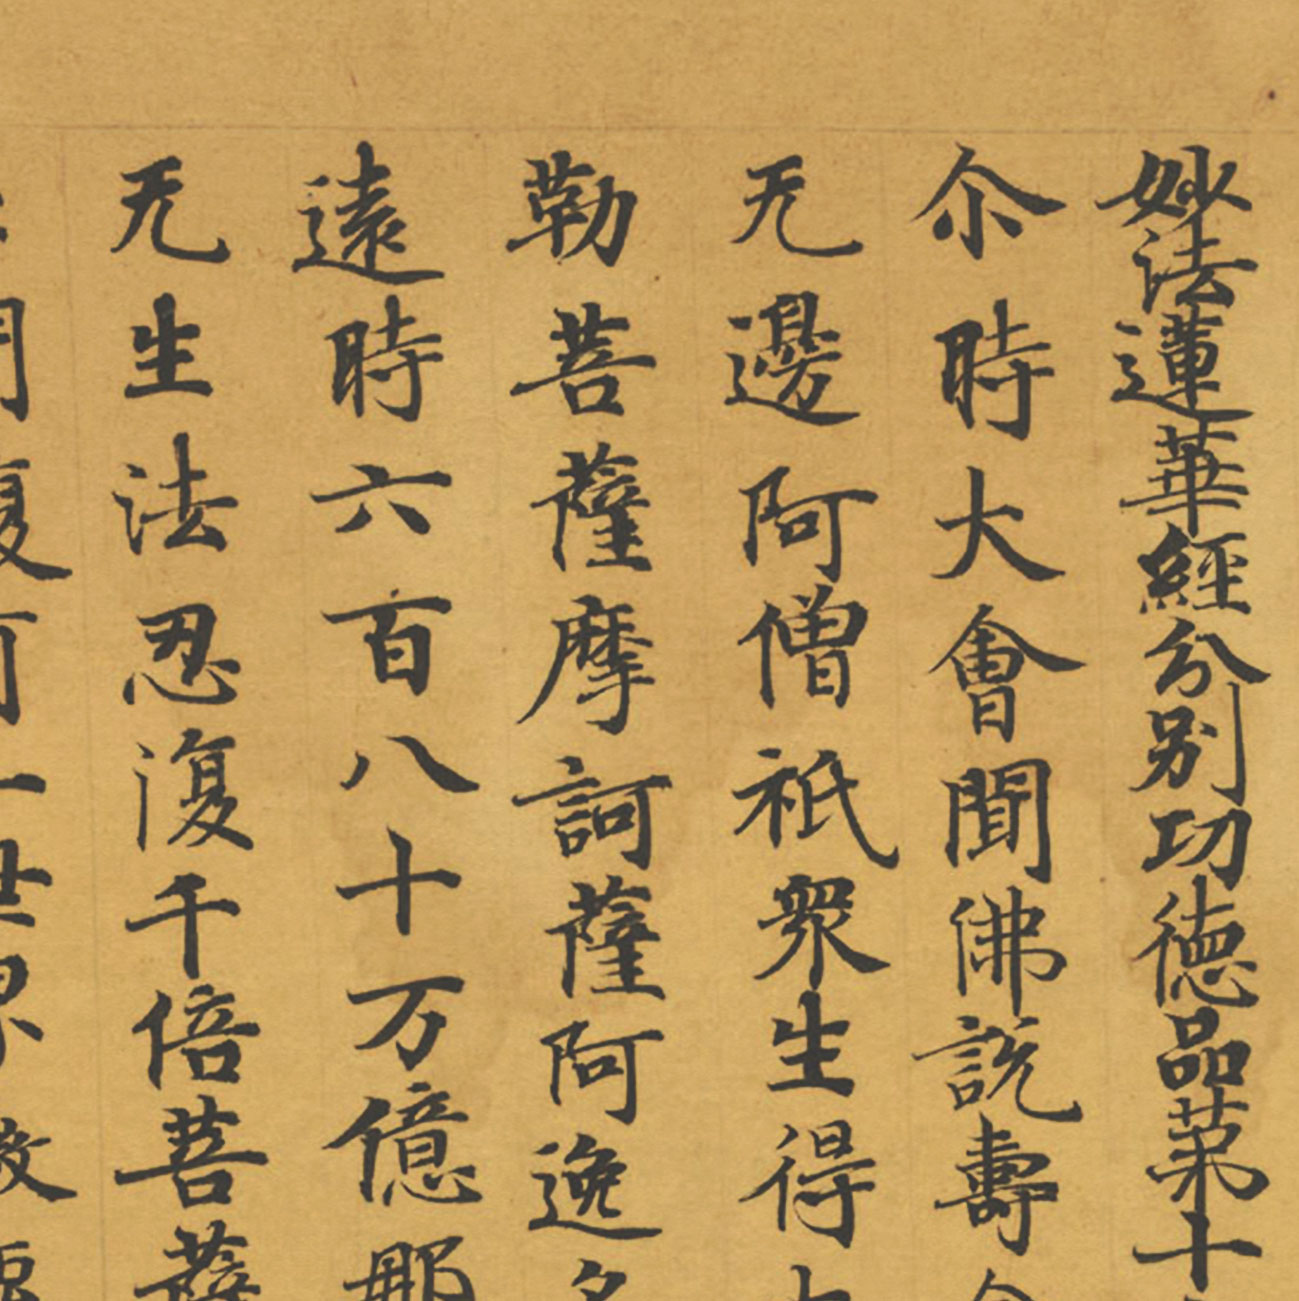 妙法蓮華經分別功德品第十
尒時大會聞佛說壽
无邊阿僧祇衆生得
勒菩薩摩訶薩阿逸
遠時六百八十万億那
无生法忍復千倍菩薩